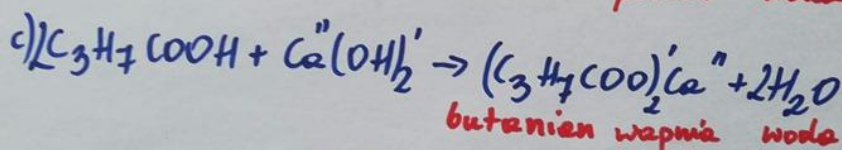 c) 2C₃H₇COOH + Ca"(OH)₂' → (C₃H₇COO)₂'Ca" + 2H₂O
butanian wapnia woda